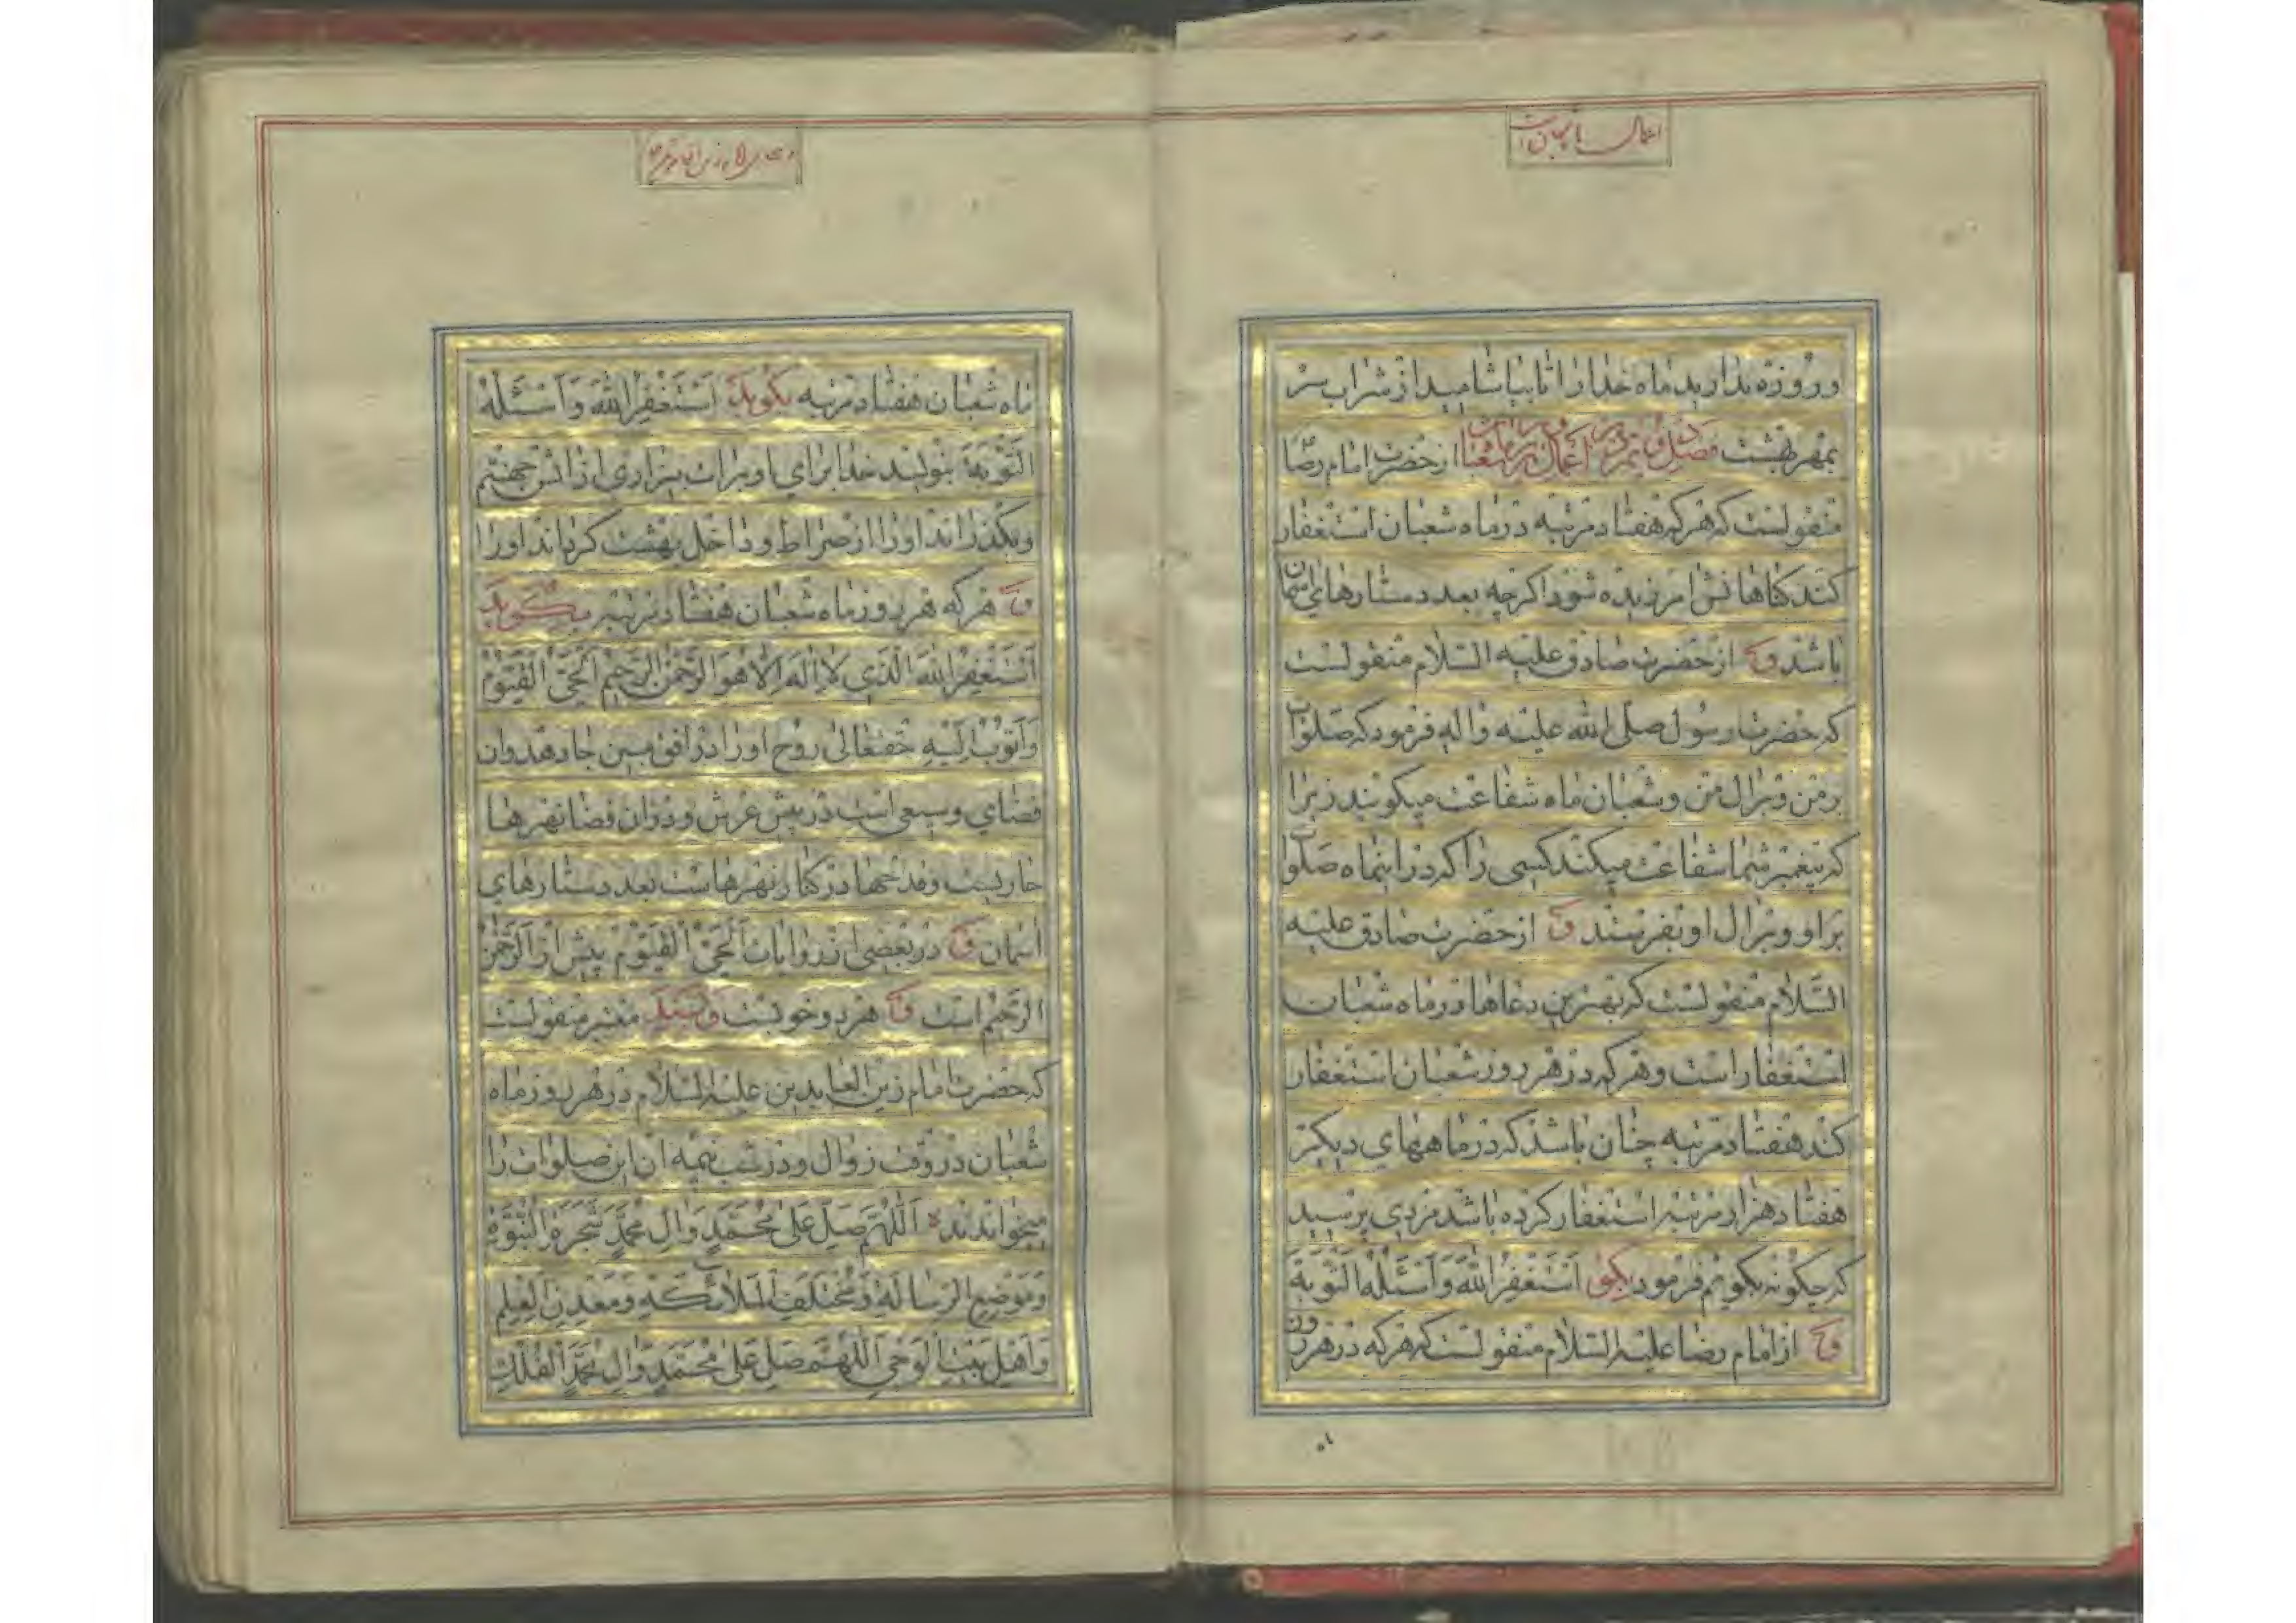 و روزه بدارید ماه خدا را تا بیاشامید از شراب سر
بمهر بهشت فصل اعمال از حضرت امام رضا
منقولست که هر که هفتاد مرتبه در ماه شعبان استغفار
کند کناهانش امرزیده شود اکرچه بعدد ستارهای اسمان
باشد از حضرت صادق علیه السلام منقولست
که حضرت رسول صلی الله علیه و اله فرمود که صلوات
بر من و بر ال من و شعبان ماه شفاعت میکویند زیرا
که پیغمبر شما شفاعت میکند کسی را که در اینماه صلوات
بر او و بر ال او بفرستند از حضرت صادق علیه
السلام منقولست که بهترین دعاها در ماه شعبان
استغفار است و هر که در هر روز شعبان استغفار
کند هفتاد مرتبه چنان باشد که در ماههای دیکر
هفتاد هزار مرتبه استغفار کرده باشد مردی پرسید
که چکونه بکویم فرمود بکو اَسْتَغْفِرُ اللهَ وَ اَسْئَلُهُ التَّوْبَةَ
از امام رضا علیه السلام منقولست که هر که در هر روز
ماه شعبان هفتاد مرتبه بکوید اَسْتَغْفِرُ اللهَ وَ اَسْئَلُهُ
التَّوْبَةَ بنویسد خدا برای او برات بیزاری از اتش جهنم
و بکذراند او را از صراط و داخل بهشت کرداند او را
هر که هر روز ماه شعبان هفتاد مرتبه بکوید
اَسْتَغْفِرُ اللهَ الَّذی لا اِلهَ اِلّا هُوَ الرَّحْمنُ الرَّحیمُ الْحَیُّ الْقَیُّومُ
وَ اَتُوبُ اِلَیْهِ حقتعالی روح او را در افق مبین جا دهد و ان
فضای وسیعی است در پیش عرش و در ان فضا نهرها
جاریست و قدحها در کنار نهرهاست بعدد ستارهای
اسمان در بعضی از روایات اَلْحَیُّ الْقَیُّومُ پیش از اَلرَّحْمنُ
الرَّحیمُ است هر دو خوبست و بسند معتبر منقولست
که حضرت امام زین العابدین علیه السلام در هر روز ماه
شعبان در وقت زوال و در شب نیمه ان این صلوات را
میخواندند اَللّهُمَّ صَلِّ عَلی مُحَمَّدٍ وَ الِ مُحَمَّدٍ شَجَرَةِ النُّبُوَّةِ
وَ مَوْضِعِ الرِّسالَةِ وَ مُخْتَلَفِ الْمَلائِکَةِ وَ مَعْدِنِ الْعِلْمِ
وَ اَهْلِ بَیْتِ الْوَحْیِ اَللّهُمَّ صَلِّ عَلی مُحَمَّدٍ وَ الِ مُحَمَّدٍ اَلْفُلْکِ